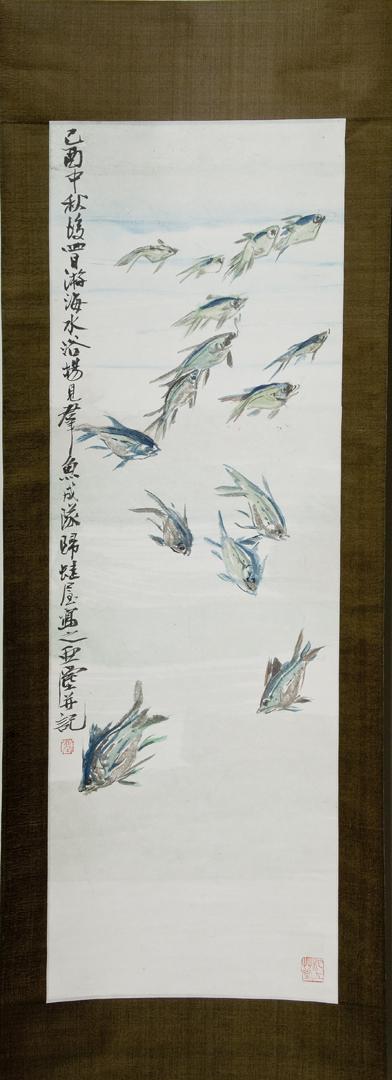 己酉中秋後四日游海水浴場見羣魚成隊歸蛙屋寫之亞塵并記